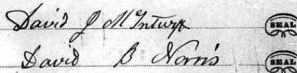 David J McIntyre SEAL
David B Norris SEAL